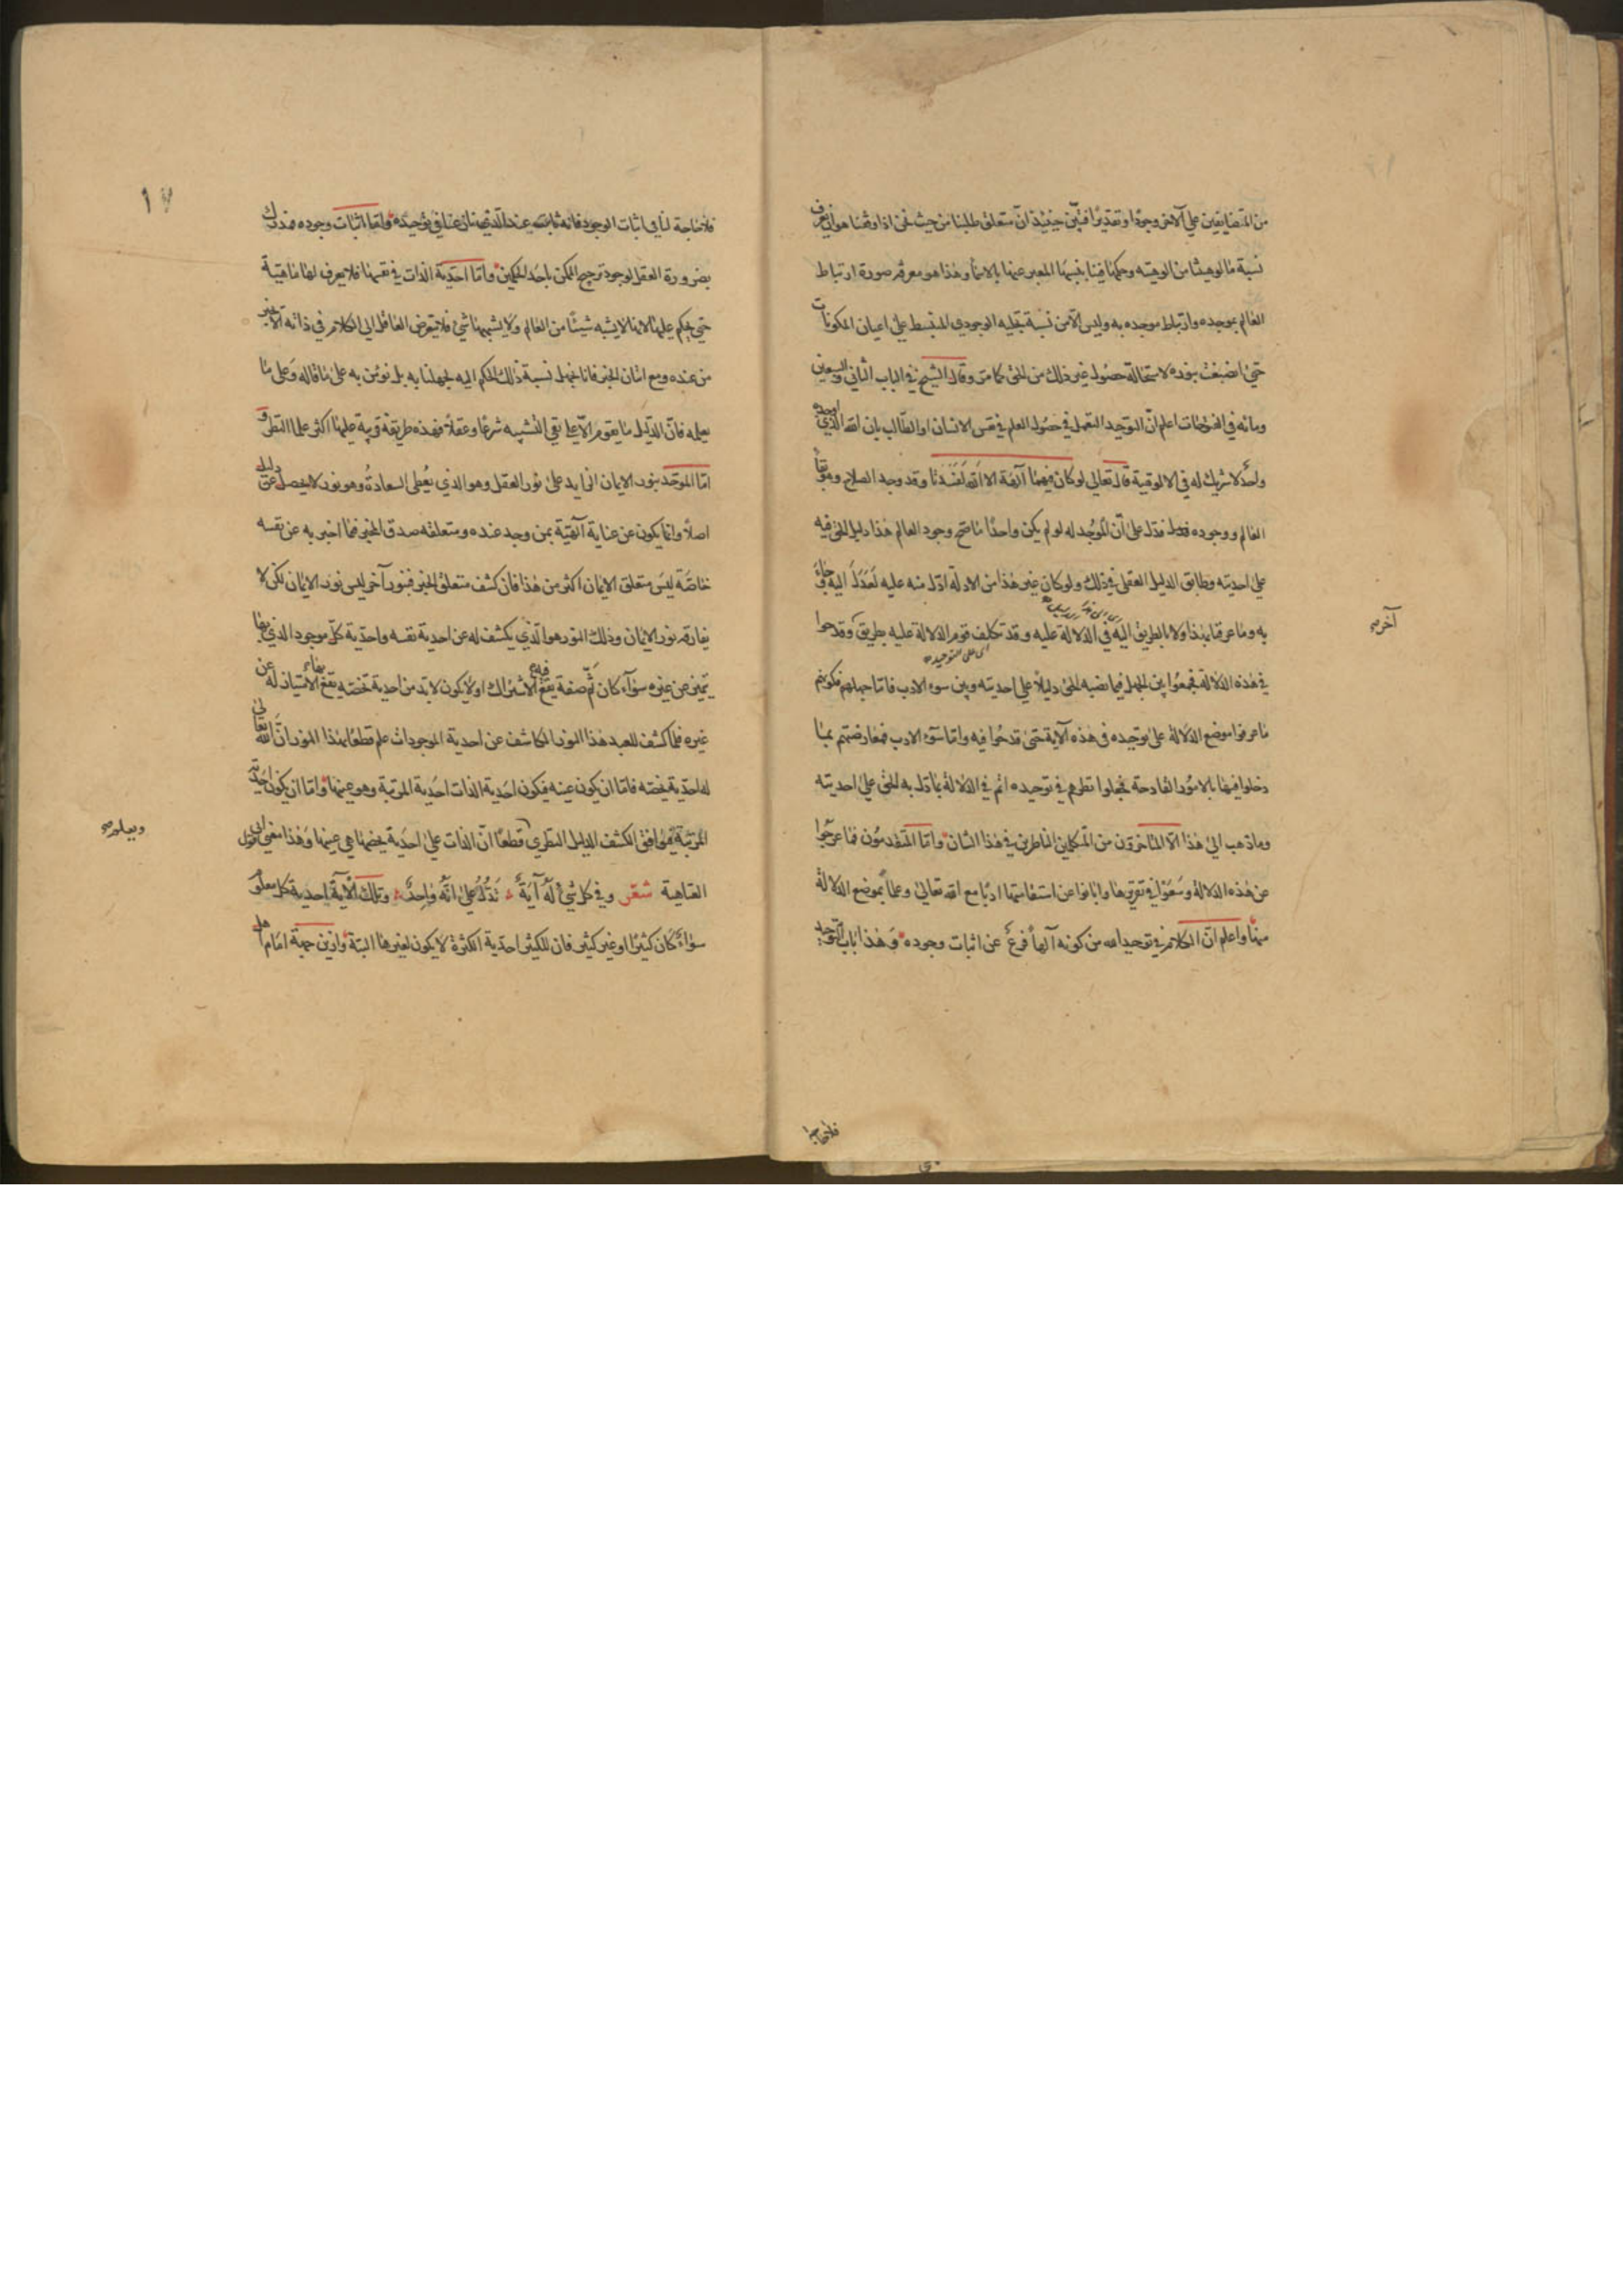 من المتضايفين على الآخر وجودا وتقديرا فتبين حينئذ ان متعلق طلبنا من حيث نحن اذا وفقنا هو ان نعرف
نسبة مألوهيتنا من الوهيته وحكمها فينا بنسبها المعبر عنها بالاسماء وهذا هو معرفة صورة ارتباط
العالم بموجده وارتباط موجده به وليس الامن نسبة تجليه الوجودي المنبسط على اعيان المكونات
حتى انصبغت بنوره لاستحالة حصول غير ذلك من الحق كما مر وقال الشيخ في الباب الثاني والسبعين
ومائه في الفتوحات اعلم ان التوحيد التعمل في حصول العلم في نفس الانسان او الطالب بان الله الذي اوجده
واحد لا شريك له في الالوهية قال تعالى لو كان فيهما آلهة الا الله لفسدتا وقد وجد الصلاح وهو بقاء
العالم ووجوده فدل على ان الموجد له لو لم يكن واحدا ما صح وجود العالم هذا دليل الحق فيه
على احديته وطابق الدليل العقلي في ذلك ولو كان غير هذا من الادلة ادل منه عليه لعدل اليه وجاء
به وما عرفنا بهذا ولا بالطريق اليه في الدلالة عليه وقد تكلف قوم الدلالة عليه بطريق وقدحوا
آخر صح
اى على التوحيد
في هذه الدلالة فجمعوا بين الجهل فيما نصبه الحق دليلا على احديته وبين سوء الادب فاما جهلهم فكونهم
ما عرفوا موضع الدلالة على توحيده في هذه الآية حتى قدحوا فيه واما سوء الادب فمعارضتهم بما
دخلوا فيها بالامور القادحة فجعلوا نظرهم في توحيده اتم في الدلالة مما دل به الحق على احديته
وما ذهب الى هذا الا المتاخرون من المتكلمين الناظرين في هذا الشان واما المتقدمون فما عرجوا
عن هذه الدلالة وسعوا في تقريرها وابانوا عن استقامتها ادبا مع الله تعالى وعلما بموضع الدلالة
منها واعلم ان الكلام في توحيد الله من كونه آلها فرع عن اثبات وجوده وهذا باب التوحيد
فلا حاجة
١٧
فلا حاجة لنا في اثبات الوجود فانه ثابت عند الذي نازعنا في توحيده واما اثبات وجوده فمدرك
بضرورة العقل لوجود ترجيح الممكن باحد الحكمين واما احدية الذات في نفسها فلا يعرف لها ماهية
حتى يحكم عليها لانها لا يشبه شيئا من العالم ولا يشبهها شئ فلا يتعرض العاقل الى الكلام في ذاته الا بخبر
من عنده ومع اتيان الخبر فانا نجهل نسبة ذلك الحكم اليه لجهلنا به بل نومن به على ما قاله وعلى ما
يعلمه فان الدليل ما يقوم الا على نفي التشبيه شرعا وعقلا فهذه طريقة قريبة عليها اكثر علماء النظر و
اما الموحد بنور الايمان الزايد على نور العقل وهو الذي يعطى السعادة وهو نور لا يحصل عن دليل
اصلا وانما يكون عن عناية آلهية بمن وجد عنده ومتعلقه صدق المخبر فيما اخبر به عن نفسه
خاصة ليس متعلق الايمان اكثر من هذا فان كشف متعلق الخبر فبنور آخر ليس نور الايمان لكن لا
يفارقه نور الايمان وذلك النور هو الذي يكشف له عن احدية نفسه واحدية كل موجود الذي بها
يتميز عن غيره سواء كان ثم صفة يقع فيه الاشتراك اولا يكون لا بد من احدية تخصه يقع بها الامتياز له عن
غيره فلما كشف للعبد هذا النور الكاشف عن احدية الموجودات علم قطعا بهذا النور ان الله تعالى
له احدية يخصه فاما ان يكون عينه فيكون احدية الذات احدية المرتبة وهو عينها واما ان يكون احدية
المرتبة فيوافق الكشف الدليل النظري قطعا ان الذات على احدية يخصها هي عينها وهذا معنى قول ابي
ويعلم صح
العتاهية شعر وفي كل شئ له آية تدل على انه واحد وتلك الآية احدية كل معلوم
سواء كان كثيرا او غير كثير فان للكثير احدية الكثرة لا يكون لغيرها البتة واذين حجبة امام اهل